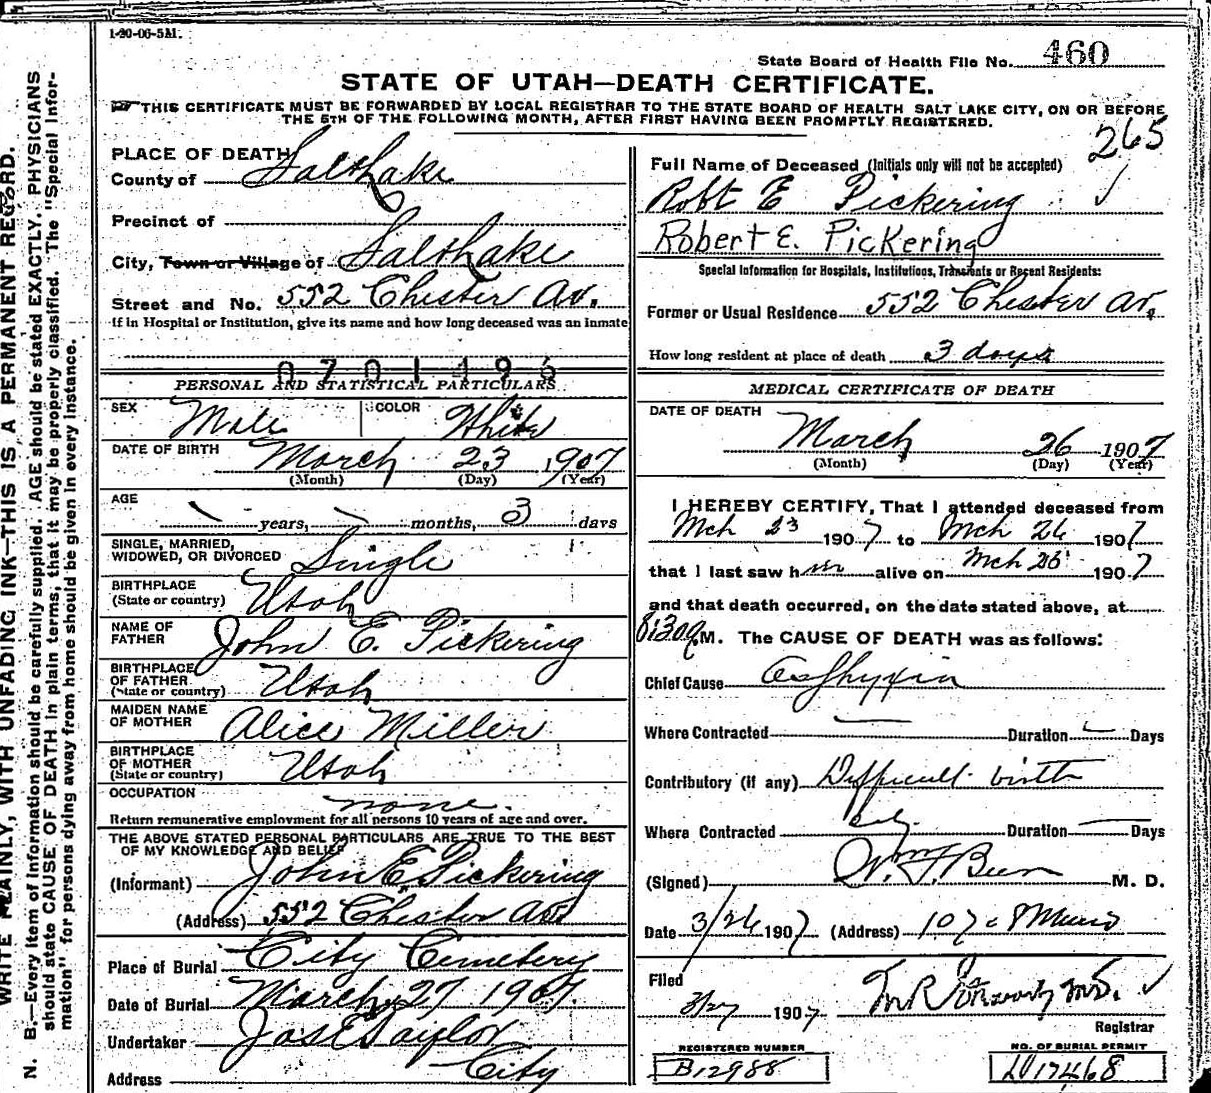 WRITE PLAINLY, WITH UNFADING INK—THIS IS A PERMANENT RECORD.
N. B.—Every item of Information should be carefully supplied. AGE should be stated EXACTLY. PHYSICIANS
should state CAUSE OF DEATH in plain terms, that it may be properly classified. The "Special Infor-
mation" for persons dying away from home should be given in every instance.
1-20-06-5M.
State Board of Health File No. 460
STATE OF UTAH—DEATH CERTIFICATE.
THIS CERTIFICATE MUST BE FORWARDED BY LOCAL REGISTRAR TO THE STATE BOARD OF HEALTH SALT LAKE CITY, ON OR BEFORE
THE 5TH OF THE FOLLOWING MONTH, AFTER FIRST HAVING BEEN PROMPTLY REGISTERED.
265
PLACE OF DEATH
County of Salt Lake
Precinct of
City, Town or Village of Salt Lake
Street and No. 552 Chester Av.
If in Hospital or Institution, give its name and how long deceased was an inmate
0701496
PERSONAL AND STATISTICAL PARTICULARS
SEX Male COLOR White
DATE OF BIRTH March 23 1907
(Month) (Day) (Year)
AGE
years, months, 3 days
SINGLE, MARRIED,
WIDOWED, OR DIVORCED Single
BIRTHPLACE
(State or country) Utah
NAME OF
FATHER John E. Pickering
BIRTHPLACE
OF FATHER
(State or country) Utah
MAIDEN NAME
OF MOTHER Alice Miller
BIRTHPLACE
OF MOTHER
(State or country) Utah
OCCUPATION none.
Return remunerative employment for all persons 10 years of age and over.
THE ABOVE STATED PERSONAL PARTICULARS ARE TRUE TO THE BEST
OF MY KNOWLEDGE AND BELIEF
(Informant) John E Pickering
(Address) 552 Chester Av
Place of Burial City Cemetery
Date of Burial March 27 1907.
Undertaker Jas E Taylor
Address City
Full Name of Deceased (Initials only will not be accepted)
Robt E Pickering
Robert E. Pickering
Special Information for Hospitals, Institutions, Transients or Recent Residents:
Former or Usual Residence 552 Chester Av.
How long resident at place of death 3 days
MEDICAL CERTIFICATE OF DEATH
DATE OF DEATH
March 26 1907
(Month) (Day) (Year)
I HEREBY CERTIFY, That I attended deceased from
Mch 23 1907 to Mch 26 1907
that I last saw him alive on Mch 26 1907
and that death occurred, on the date stated above, at
8:30 a M. The CAUSE OF DEATH was as follows:
Chief Cause Asphyxia
Where Contracted Duration Days
Contributory (if any) Difficult birth
Where Contracted Duration Days
(Signed) M. D.
Date 3/26 1907 (Address)
Filed
3/27 1907
Registrar
REGISTERED NUMBER
B12988
NO. OF BURIAL PERMIT
17468